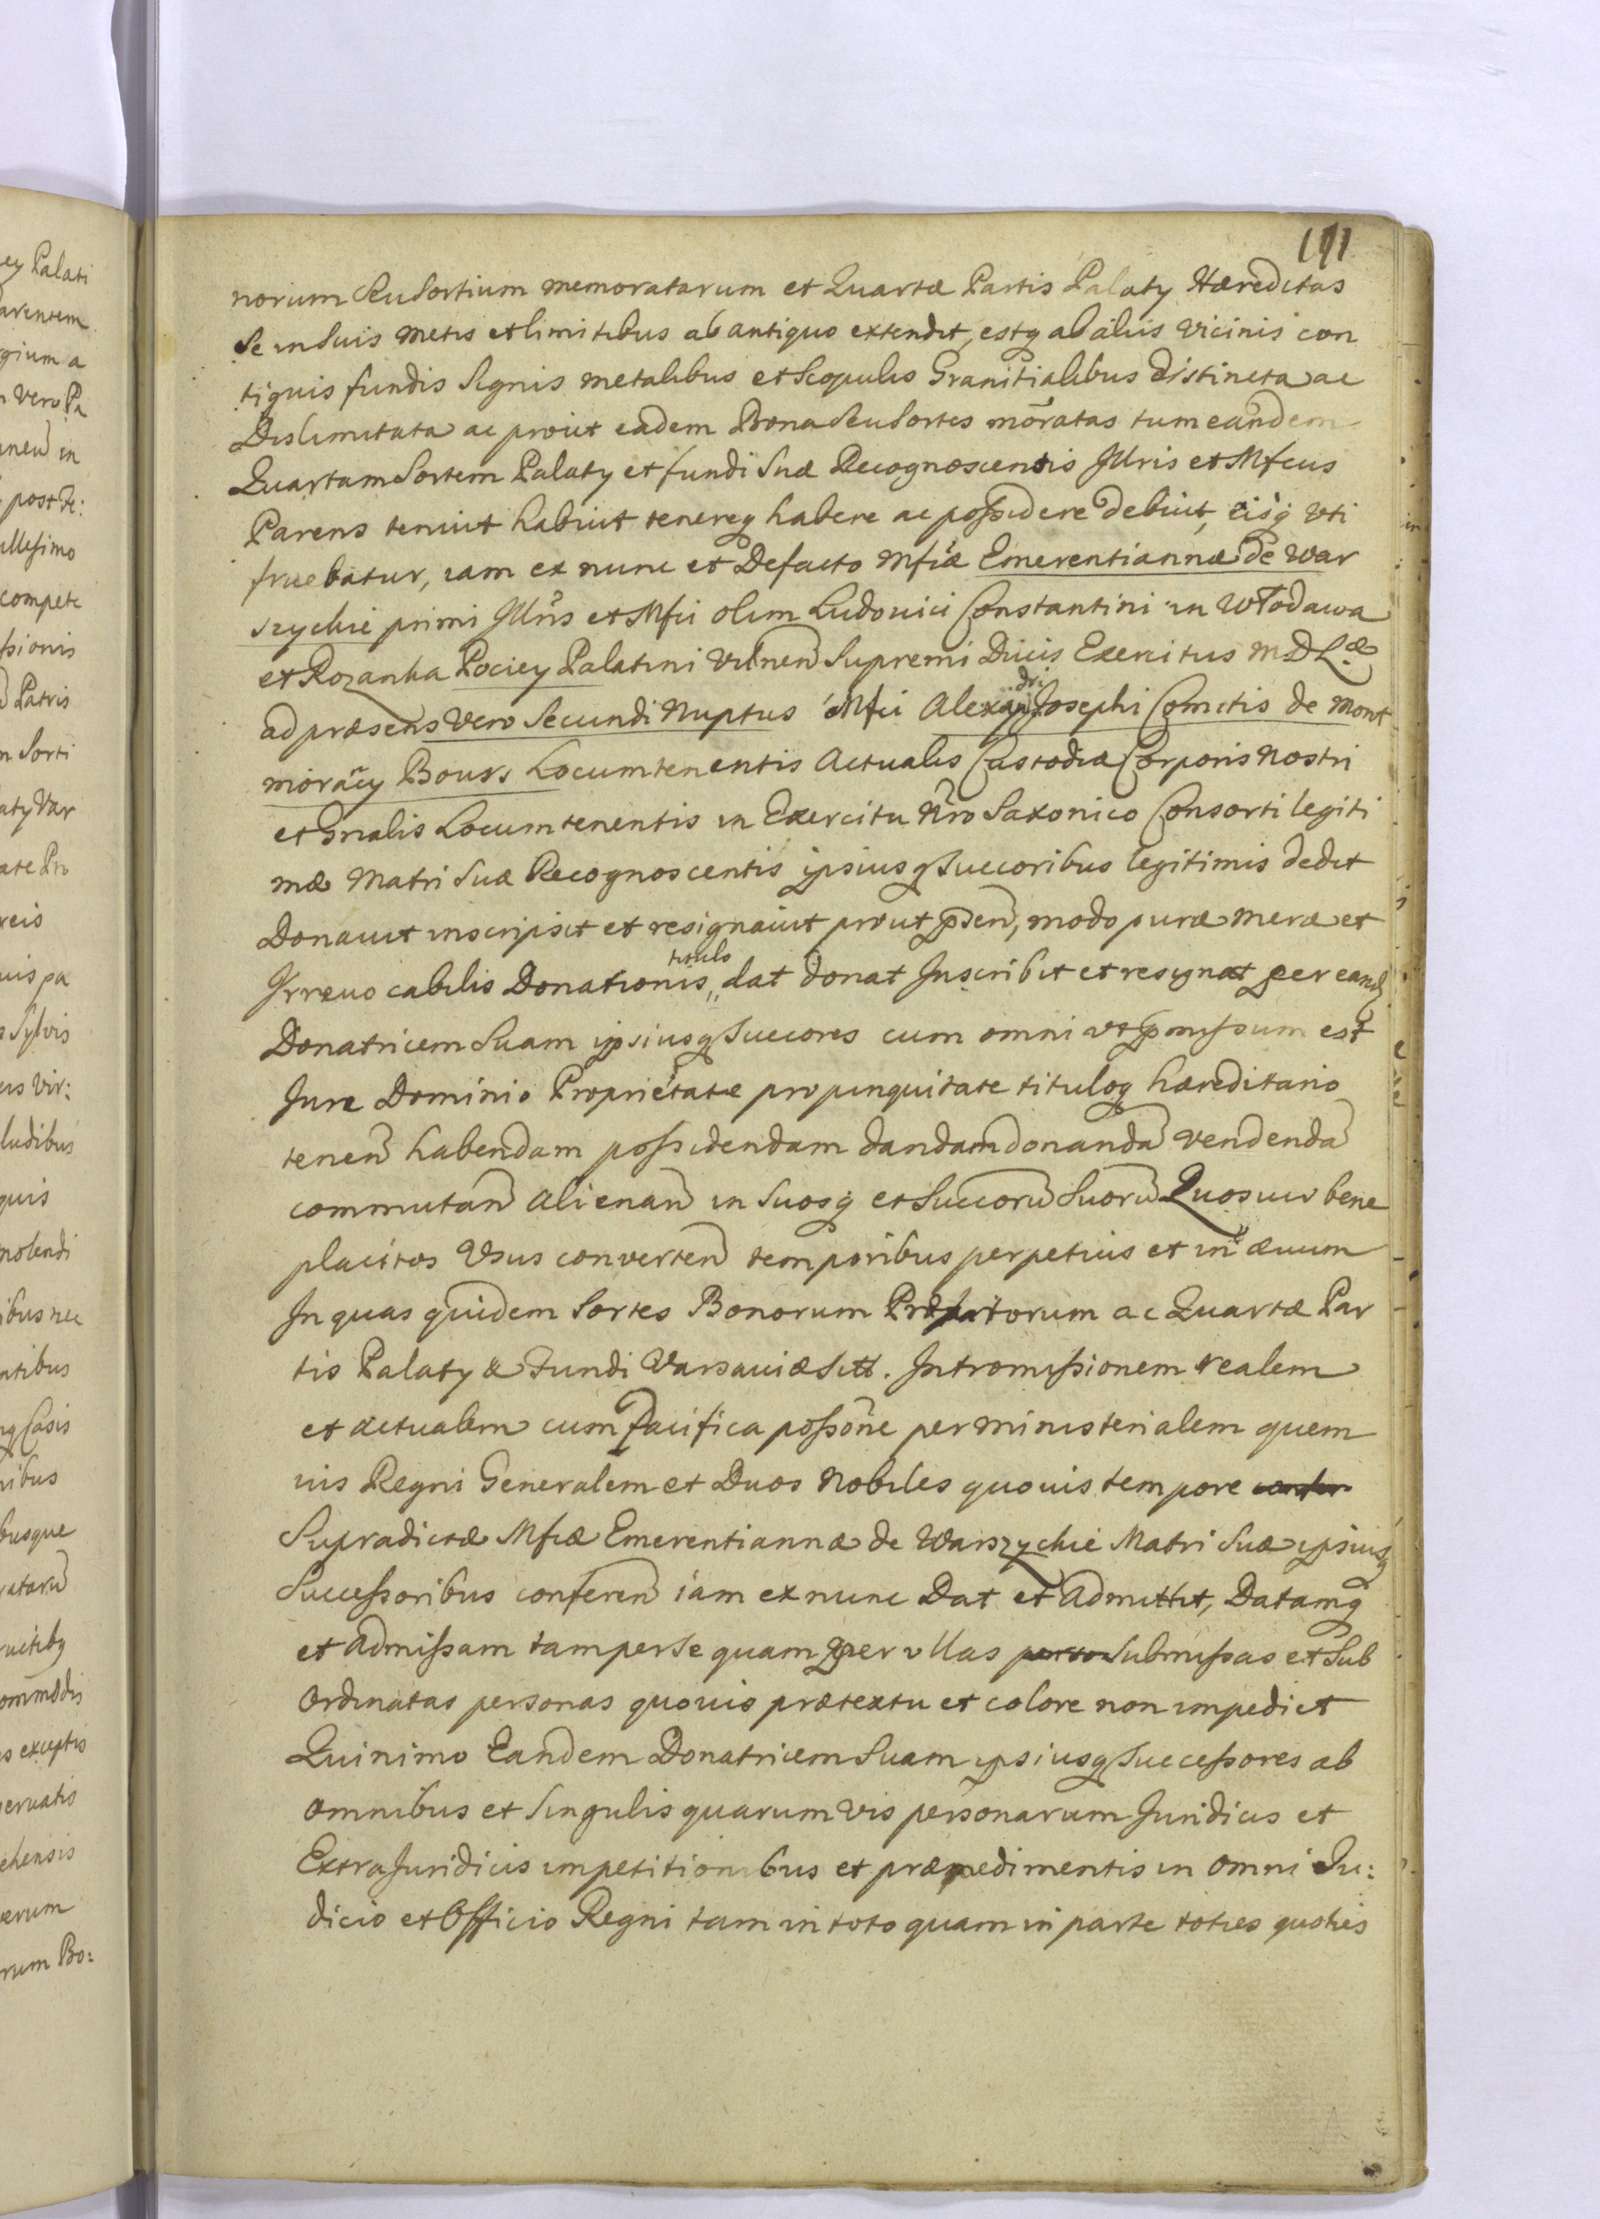 191
norum seu Sortium memoratarum et Quartæ Partis Palaty Hæreditas
Se in Suis metis et limitibus ab antiquo extendit, estq ab alüs vicinis con
tiguis fundis Signis metalibus et Scopulis Granitialibus distincta ac
Dislimitata ac prout eadem Bona Seu Sortes moratas tum eandem
Quartam Sortem Palaty et fundi Suæ Recognoscentis Jllris et Mfcus
Parens tenuit habuit tenereq habere ac possidere debuit, eisq vti
fruebatur, iam ex nunc et Defacto Mfcæ Emerentiannæ de War
szychie primi Jllris et Mfci olim Ludovici Constantini in Włodawa
et Rozanka Pociey Palatini Vilnen Supremi Ducis Exercitus M D L.æ
ad præsens Vero Secundi Nuptus Mfci Alexandri Josephi Comitis de Mont
moracy Bours Locumtenentis Actualis Custodiæ Corporis Nostri
et Gnalis Locumtenentis in Exercitu Nro Saxonico Consorti legiti
mæ Matri Suæ Recognoscentis ipsiusq Succoribus legitimis dedit
Donauit inscripsit et resignauit prout psen, modo puræ meræ et
Irreuocabilis Donationis titulo dat donat Inscribit et resignat per eand
Donatricem Suam ipsiusq Succores cum omni vt pmissum est
Jure Dominio Proprietate propinquitate tituloq hæreditario
tenen habendam possidendam dandam donanda vendenda
commutan alienan in Suosq et Succoru Suoru Quosuis bene
placitos Vsus converten temporibus perpetuis et in æuum
In quas quidem Sortes Bonorum Præfatorum ac Quartæ Par
tis Palaty & Fundi Varsauiæ Sitt. Intromissionem realem
et actualem cum Pacifica possone per ministerialem quem
uis Regni Generalem et Duos Nobiles quouis tempore
Supradictæ Mfcæ Emerentiannæ de Warszychie Matri Suæ ipsiusq
Successoribus conferen iam ex nunc Dat et Admittit, Datamq
et Admissam tam per Se quam per vllas Submissas et Sub
Ordinatas personas quouis prætextu et colore non impediet
Quinimo Eandem Donatricem Suam ipsiusq Successores ab
omnibus et Singulis quarumvis personarum Juridicis et
ExtraJuridicis impetitionibus et præpedimentis in omni Ju:
dicio et Officio Regni tam in toto quam in parte toties quoties